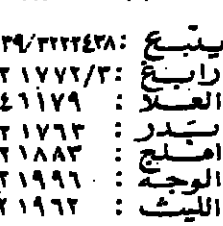 ينبع : ٣٩/٣٢٢٢٤٣٨
رابغ : ٢ ١٧٧٢/٣
العلا : ٤٦١٧٩
بدر : ٢ ١٧٦٣
املج : ٢ ١٨٨٣
الوجه : ٢ ١٩٩٦
الليث : ٢ ١٩٦٢